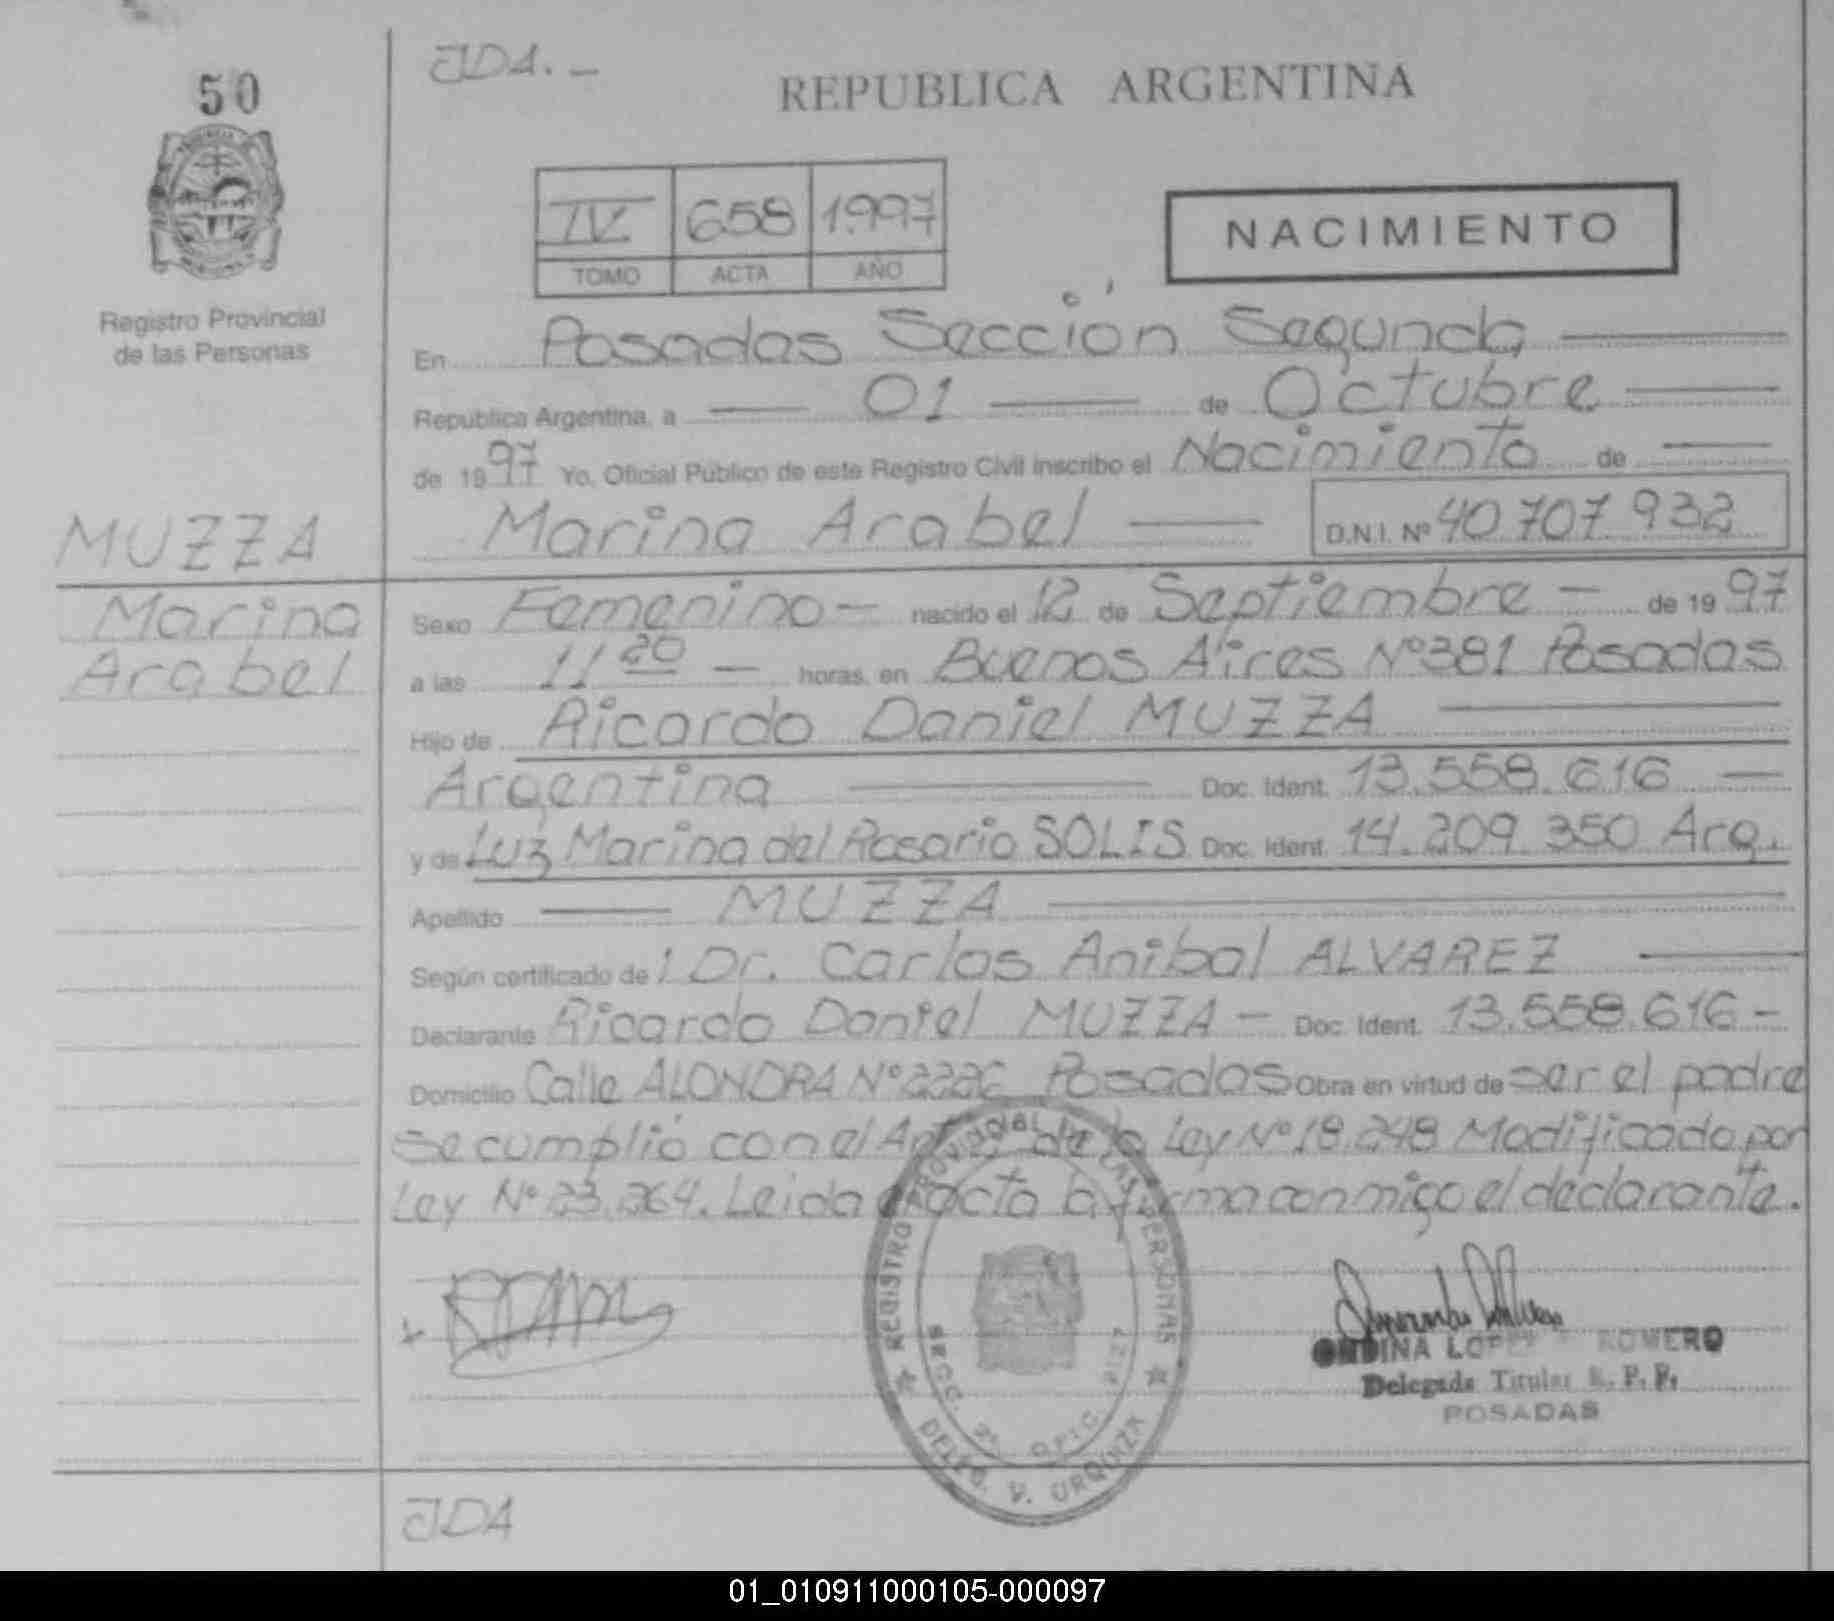 50
JDA. —
REPUBLICA ARGENTINA
IV 658 1997
TOMO ACTA AÑO
NACIMIENTO
Registro Provincial
de las Personas
En Posadas Sección Segunda
Republica Argentina, a 01 de Octubre
de 1997 Yo, Oficial Público de este Registro Civil inscribo el Nacimiento de
MUZZA
Marina Arabel
D.N.I. Nº 40.707.932
Marina
Arabel
Sexo Femenino — nacido el 12 de Septiembre — de 1997
a las 11 20 — horas, en Buenos Aires Nº 381 Posadas
Hijo de Ricardo Daniel MUZZA
Argentina Doc. Ident. 13.558.616 —
y de Luz Marina del Rosario SOLIS Doc. Ident. 14.209.350 Arg.
Apellido MUZZA
Según certificado de: Dr. Carlos Anibal ALVAREZ
Declarante Ricardo Daniel MUZZA — Doc. Ident. 13.558.616 —
Domicilio Calle ALONDRA Nº Posadas Obra en virtud de ser el padre
se cumplió con el de la Ley Nº 18.248 Modificado por
Ley Nº 23.264. Leida el acta la firma conmigo el declarante.
REGISTRO PROVINCIAL DE LAS PERSONAS
SECC. 2ª OFIC. 2127
DELEG. V. URQUIZA
ONDINA LOPEZ ROMERO
Delegada Titular R. P. P.
POSADAS
JDA
01_010911000105-000097